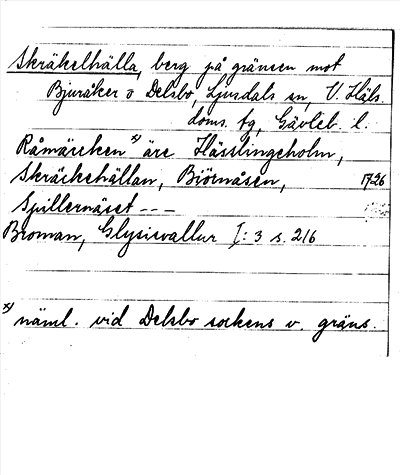 Skräkelhälla, berg på gränsen mot
Bjuråker o Delsbo, Ljusdals sn, V. Häls.
doms. fg, Gävleb. l.
Råmärcken x) äre Hässlingeholm,
Skräckehällan, Björnåsen, 1726
Spillernäset - - -
Broman, Glysisvallur I: 3 s. 216
x) näml. vid Delsbo sockens v. gräns.